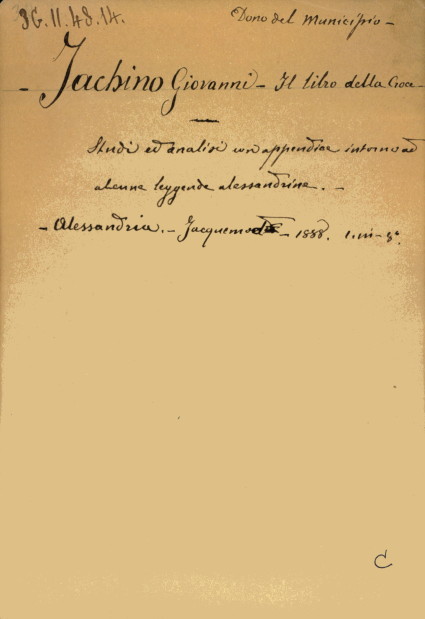 36.II.48.14.
Dono del Municipio -
- Jachino Giovanni - Il libro della Croce -
Studi ed analisi con appendice intorno ad
alcune leggende alessandrine. -
- Alessandria. - Jacquemod - 1888. 1. in - 8°.
C